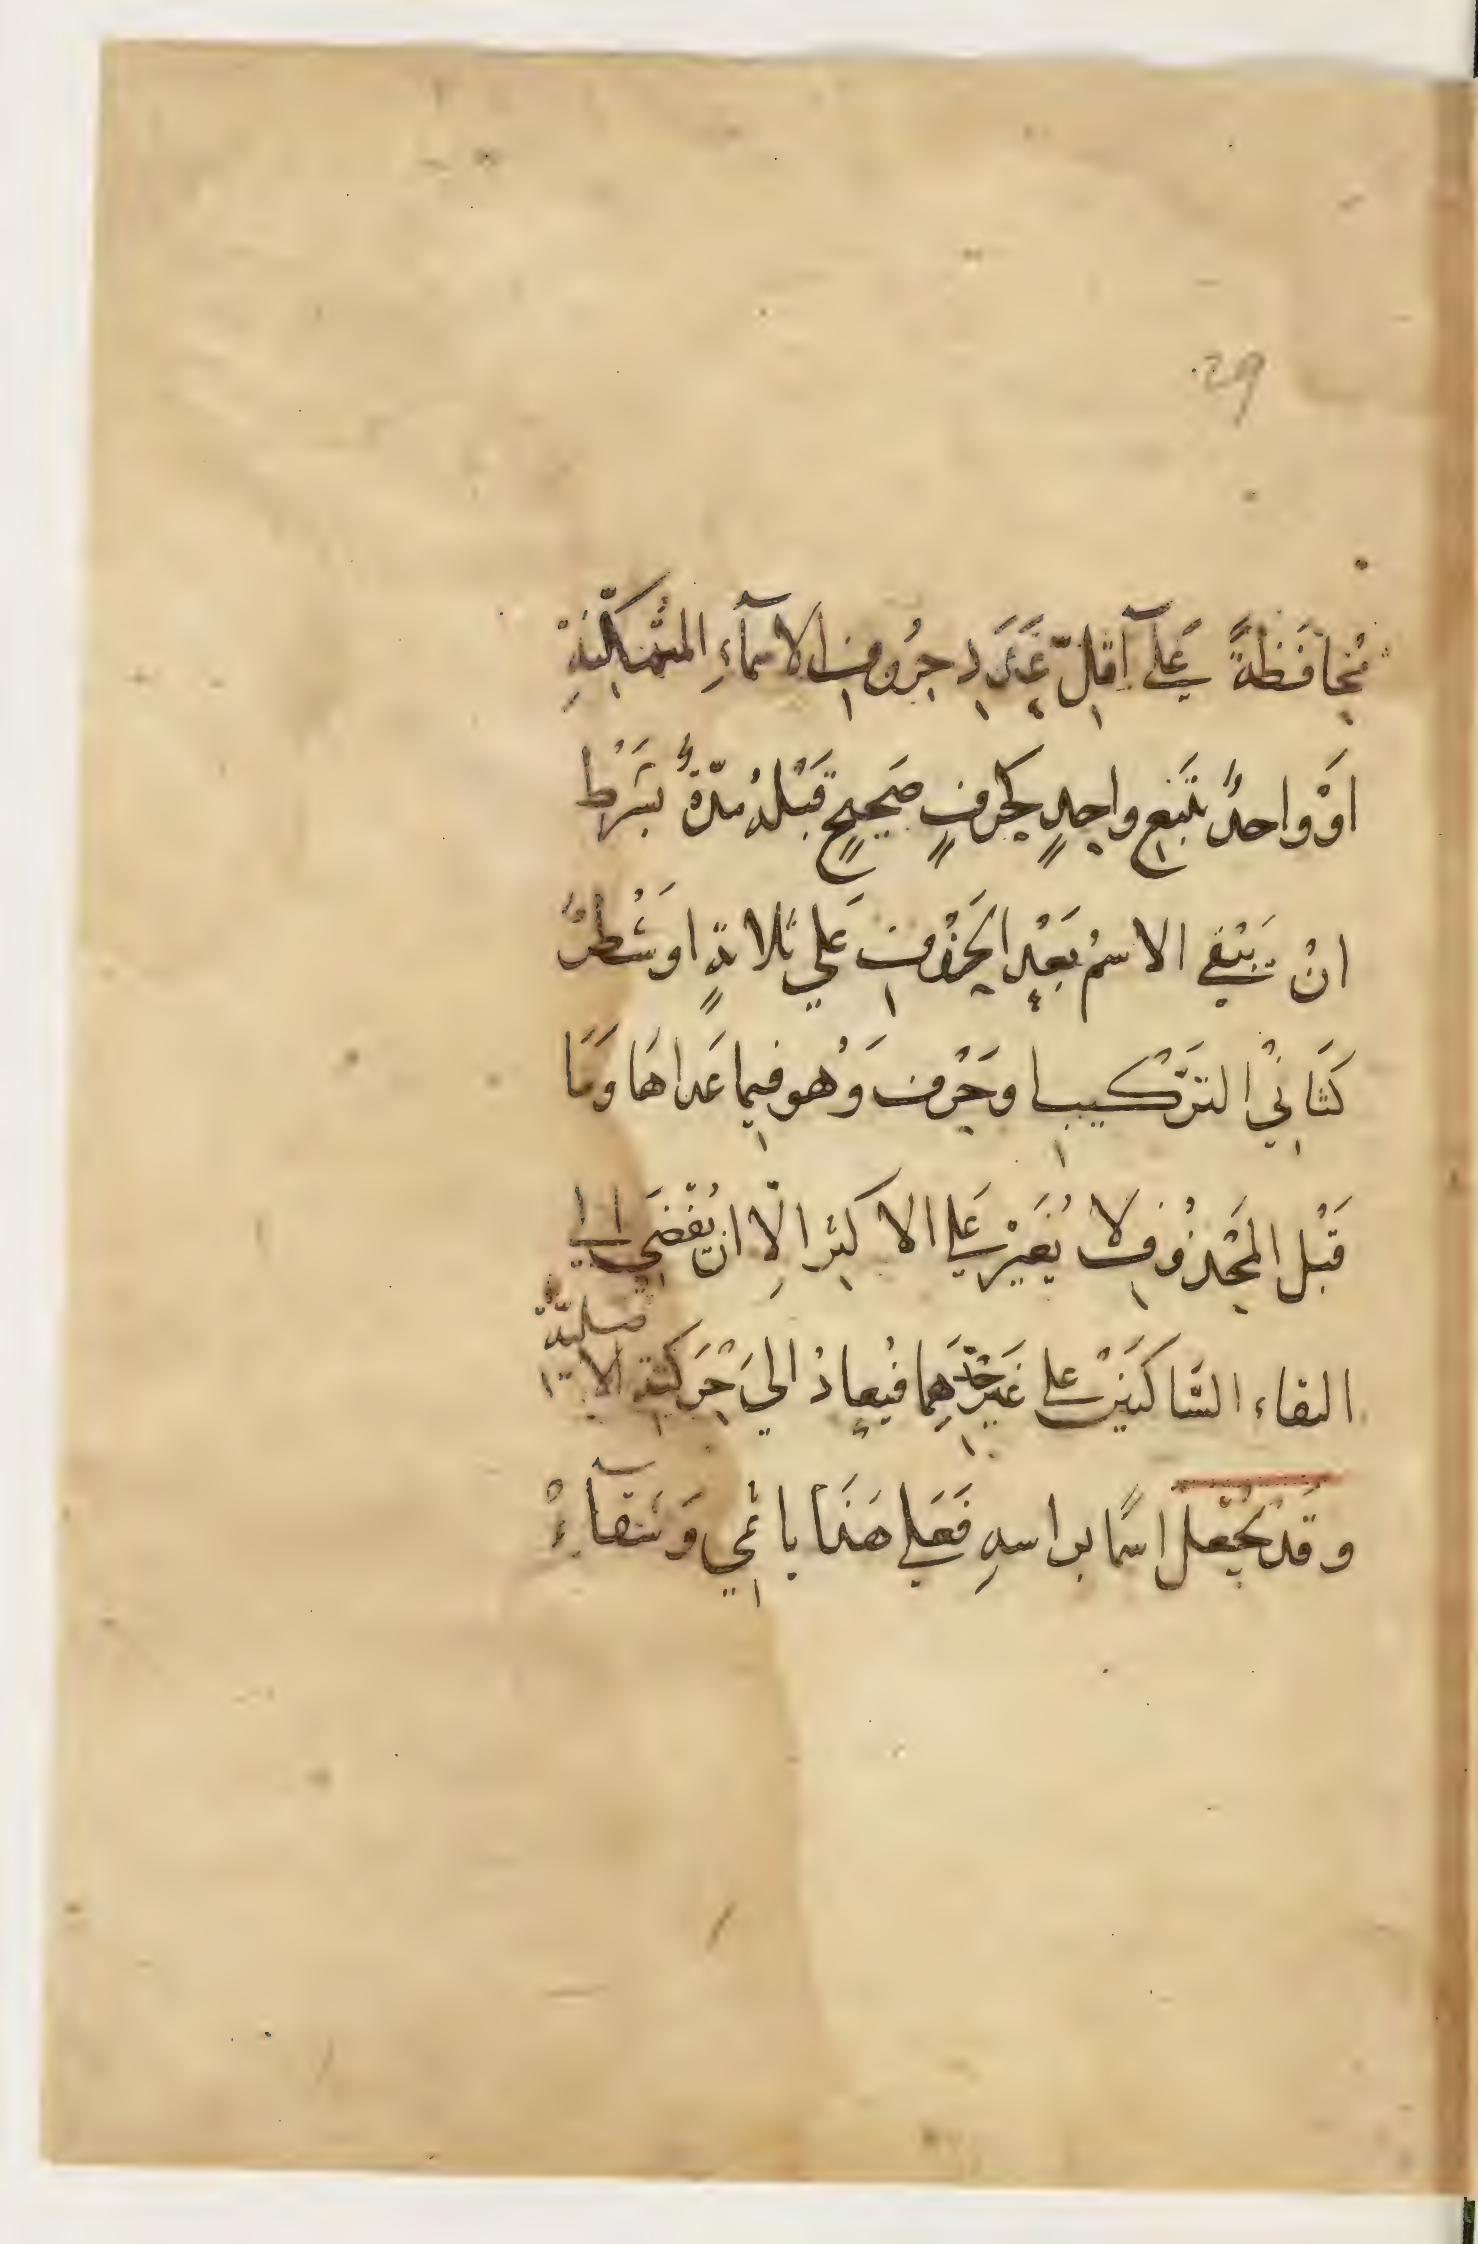 29
مُحَافَظَةً عَلَى اَقَلِّ عَدَدِ حُرُوفِ الاسمآءِ المتُمَكِّنَةِ
اَوْ وَاحدٌ يَتْبَع وَاحِدٍ كحَرفٍ صَحيحٍ قَبْلهُ مَدّةٌ بشَرْطِ
انْ يَبْقي الاسمُ بَعْد الحَذْفِ عَلي ثَلاثةٍ او شَطْرٌ
كَثَانِيْ التَرّكيب او حَرْف وَهُو فِيما عَداهَا وَمَا
قَبْل المَحْذُوْفِ لا يُغَيَرْ عَلَي الاكثر الّا ان يُفْضَي الي
التقاء السّاكنَيْن علي غَيْر حَدّهِما فيُعادْ الي حَرَكتِهِ الاصليّة
وقَدْ يُجْعَل اسمًا براسهِ فَعَلي هَذَا يا ثَمِي وَشقآءْ